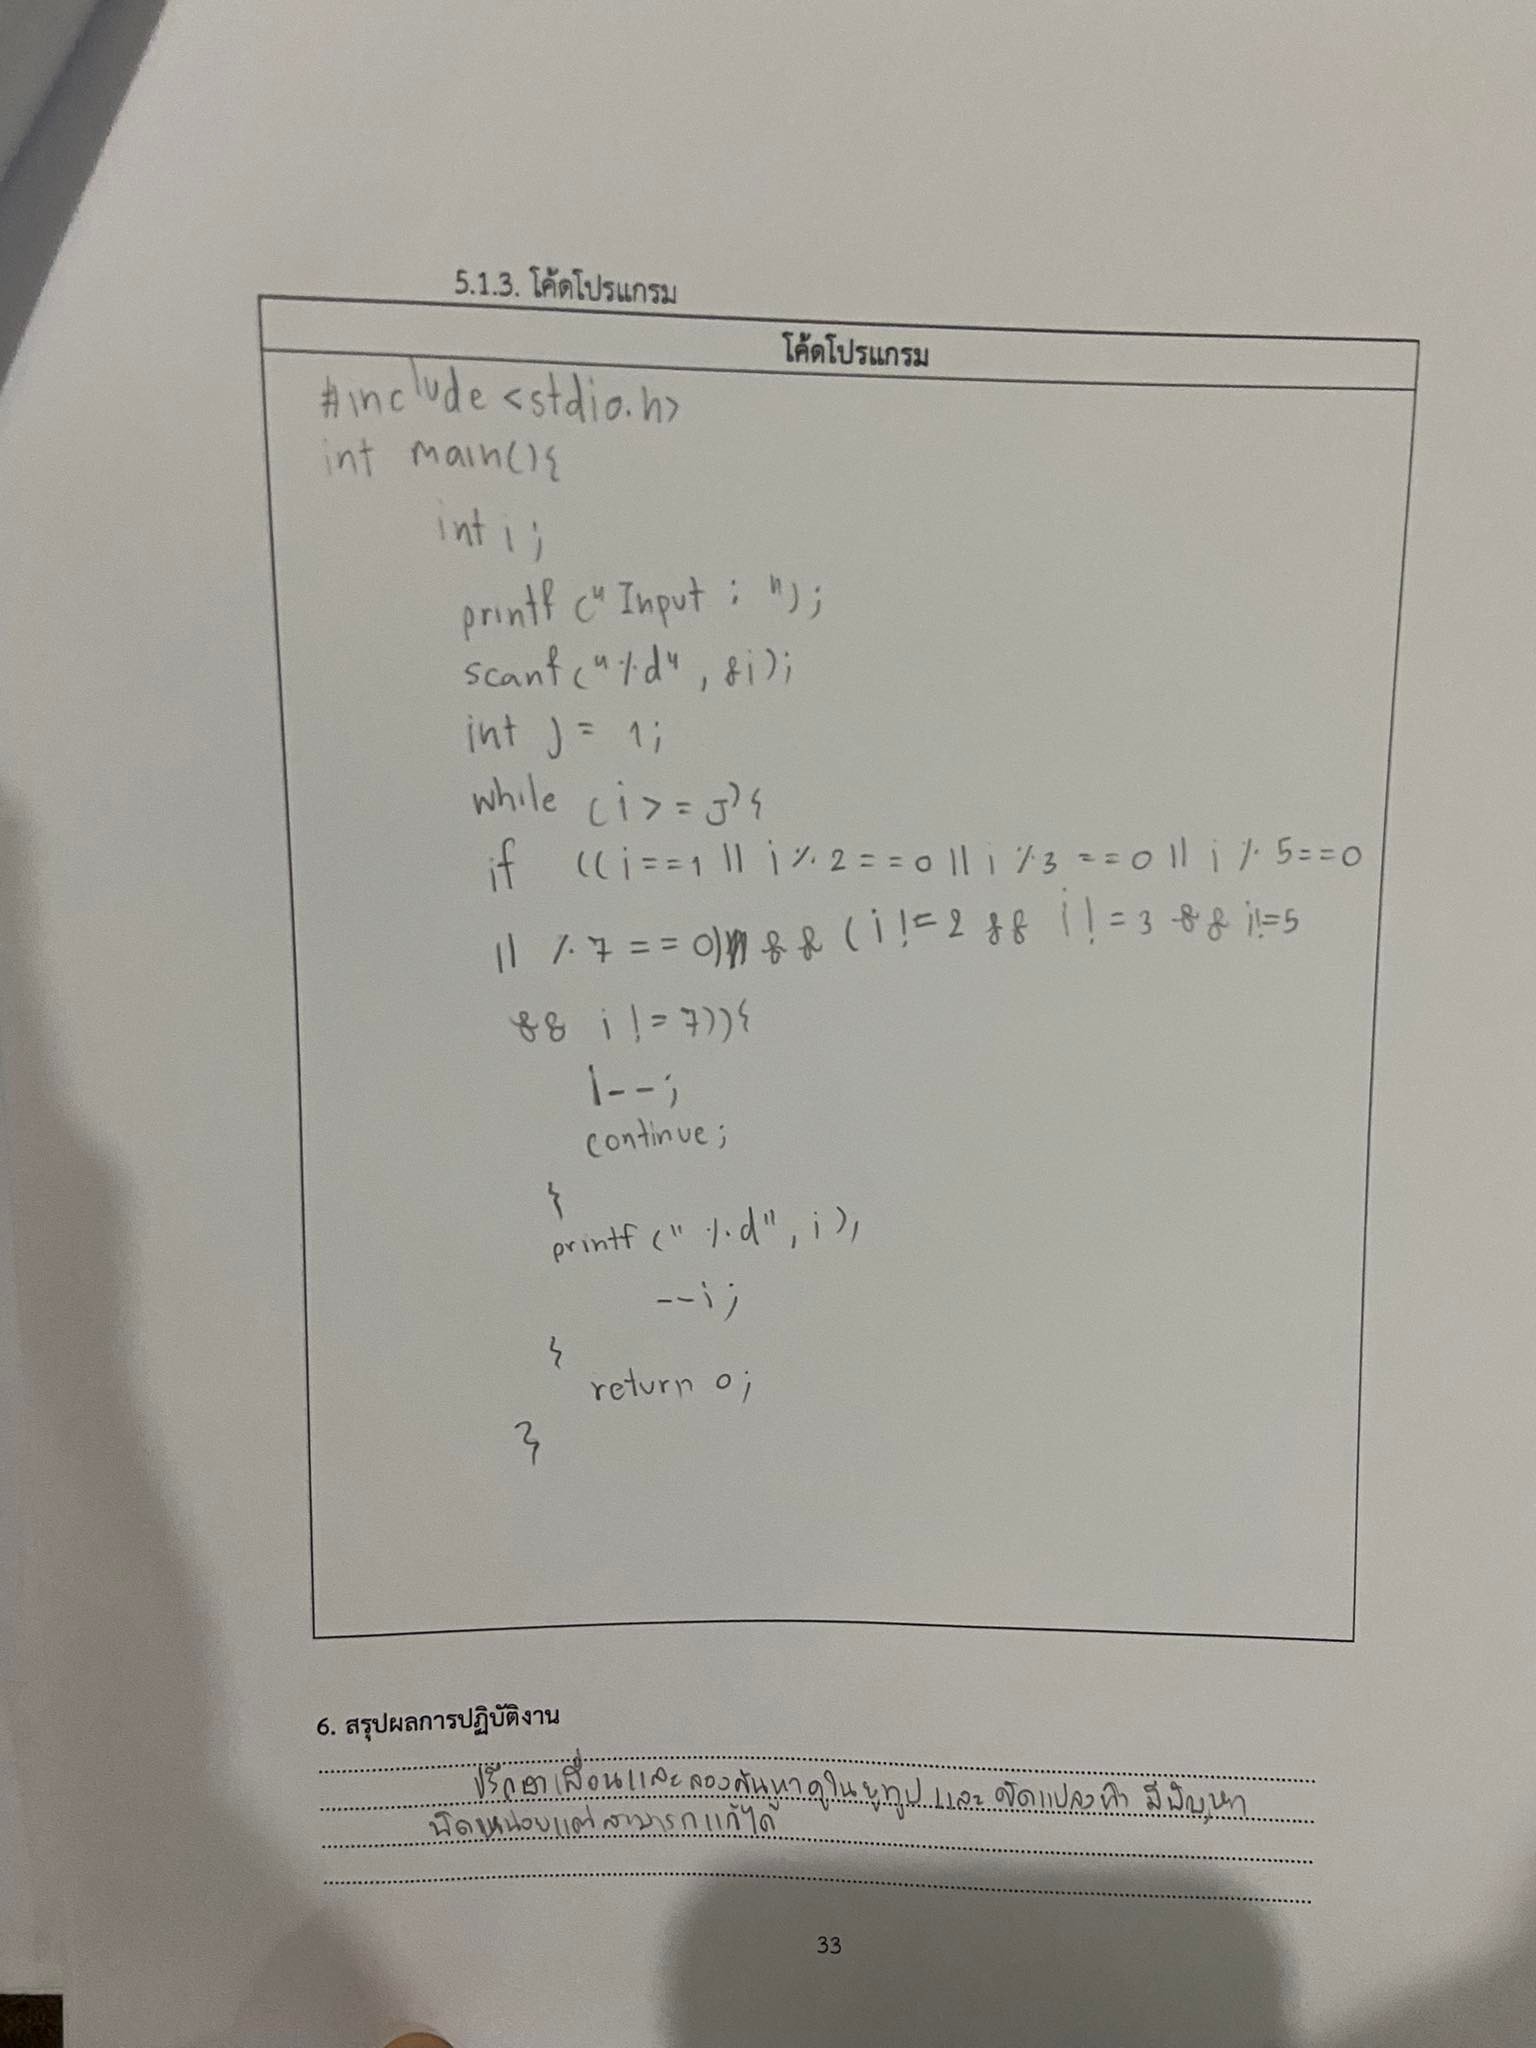 5.1.3. โค้ดโปรแกรม
โค้ดโปรแกรม
#include <stdio.h>
int main(){
int i;
printf ("Input : ");
scanf ("%d", &i);
int j = 1;
while (i >= j){
if ((i==1 || i % 2 == 0 || i % 3 == 0 || i % 5==0
|| % 7 == 0) && (i != 2 && i != 3 && i!=5
&& i != 7)){
i--;
continue;
}
printf (" %d", i);
--i;
}
return 0;
}
6. สรุปผลการปฏิบัติงาน
ปรึกษาเพื่อนและลองค้นหาดูในยูทูป และ ดัดแปลงทำ มีปัญหา
นิดหน่อยแต่สามารถแก้ได้
33